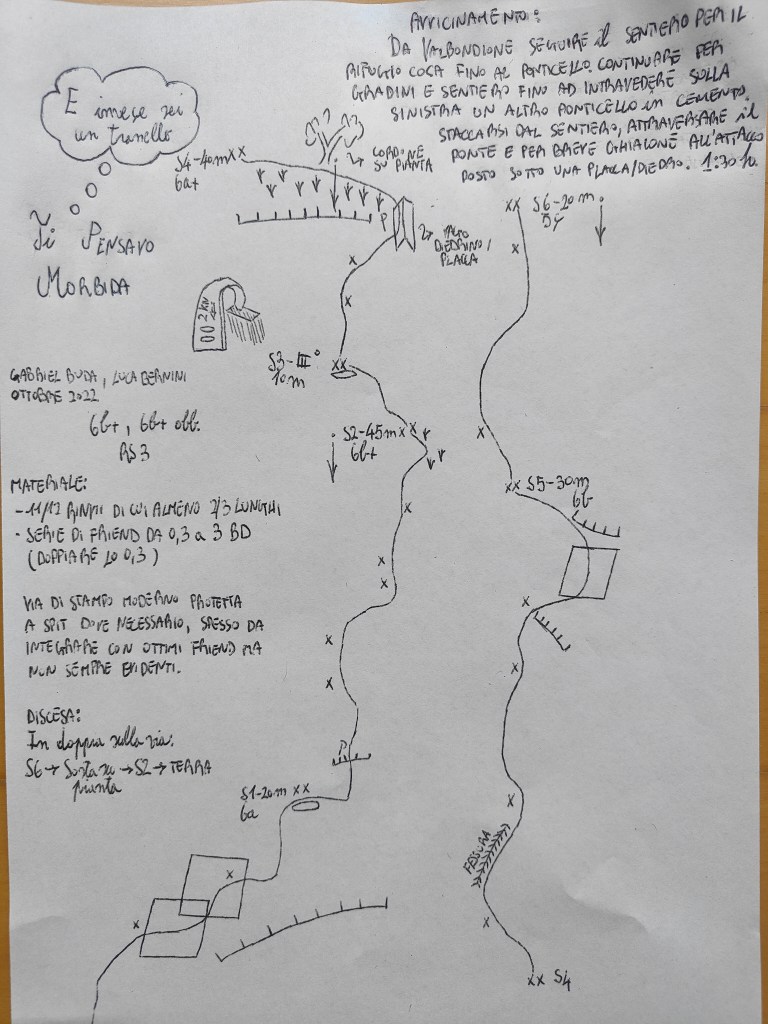 AVVICINAMENTO:
DA VALBONDIONE SEGUIRE il SENTIERO PER IL
RIFUGIO COCA FINO AL PONTICELLO. CONTINUARE PER
GRADINI E SENTIERO FINO AD INTRAVEDERE SULLA
SINISTRA UN ALTRO PONTICELLO in CEMENTO.
STACCARSI DAL SENTIERO, ATTRAVERSARE il
PONTE E PER BREVE GHIAIONE ALL'ATTACCO
POSTO SOTTO UNA PLACCA/DIEDRO. 1:30 h.
E invece sei
un tranello
Ti PENSAVO
MORBIDA
S4-40m XX
6a+
CORDONE
SU PIANTA
P
DIEDRINO/
PLACCA
XX S6-20m
X
X
X
2 KN
S3-III°
10m
XX
GABRIEL BUDA, LUCA BERNINI
OTTOBRE 2022
6b+, 6b+ obb.
RS3
S2-45m XX
6b+
X
XX S5-30m
6b
MATERIALE:
- 11/12 RINVII DI CUI ALMENO 2/3 LUNGHI
- SERIE DI FRIEND DA 0,3 a 3 BD
(DOPPIARE LO 0,3)
X
X
X
X
VIA DI STAMPO MODERNO PROTETTA
A SPIT DOVE NECESSARIO, SPESSO DA
INTEGRARE CON OTTIMI FRIEND MA
NON SEMPRE EVIDENTI.
X
X
X
DISCESA:
In doppia sulla via:
S6 → Sosta su → S2 → TERRA
pianta
P
S1-20m XX
6a
X
FESSURA
X
X
X
XX S4